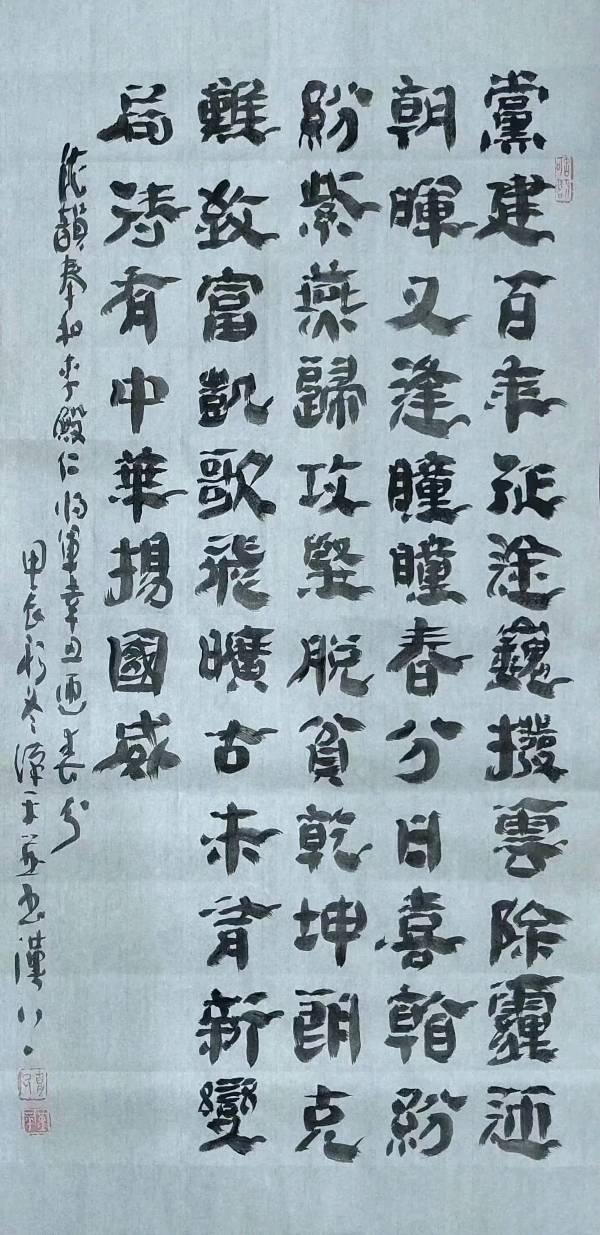 黨建百年征途巍撥雲除霾迎
朝暉又逢瞳瞳春分日喜紛
紛紫燕歸攻堅脱貧乾坤朗克
難致富凱歌飛曠古未有新變
局待看中華揚國威
依韻奉和李殿仁将軍辛丑迎春分
甲辰初冬並書漢